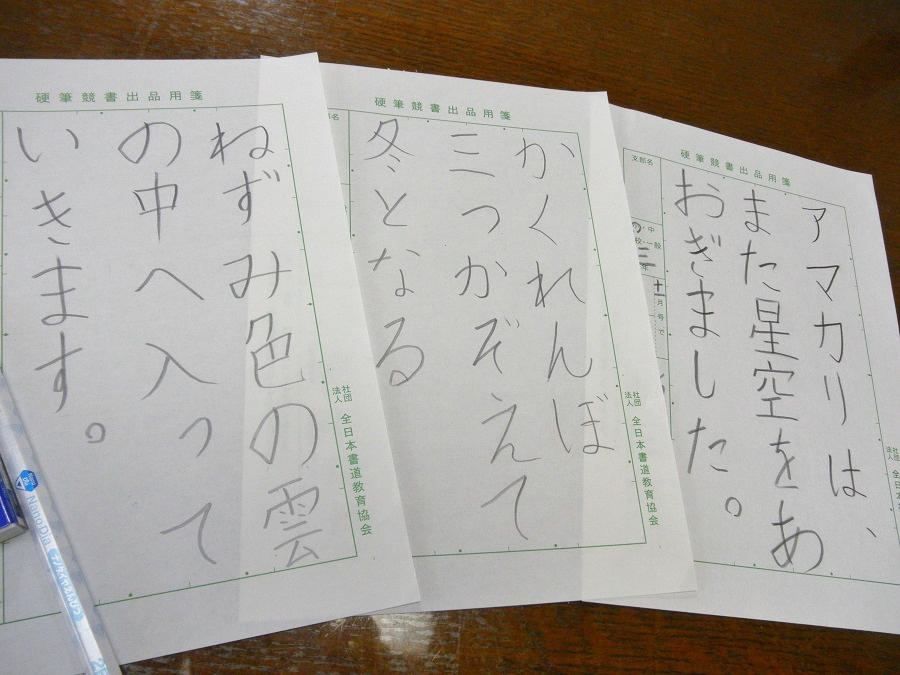 硬筆競書出品用箋
アマカリは、
また星空をあ
おぎました。
支部名
中
校・一般
三年
十一月号
社団法人 全日
硬筆競書出品用箋
かくれんぼ
三つかぞえて
冬となる
部名
社団法人 全日本書道教育協会
硬筆競書出品用箋
ねずみ色の雲
の中へ入って
いきます。
社団法人 全日本書道教育協会
NanoDia
ナノダイヤえんぴつ